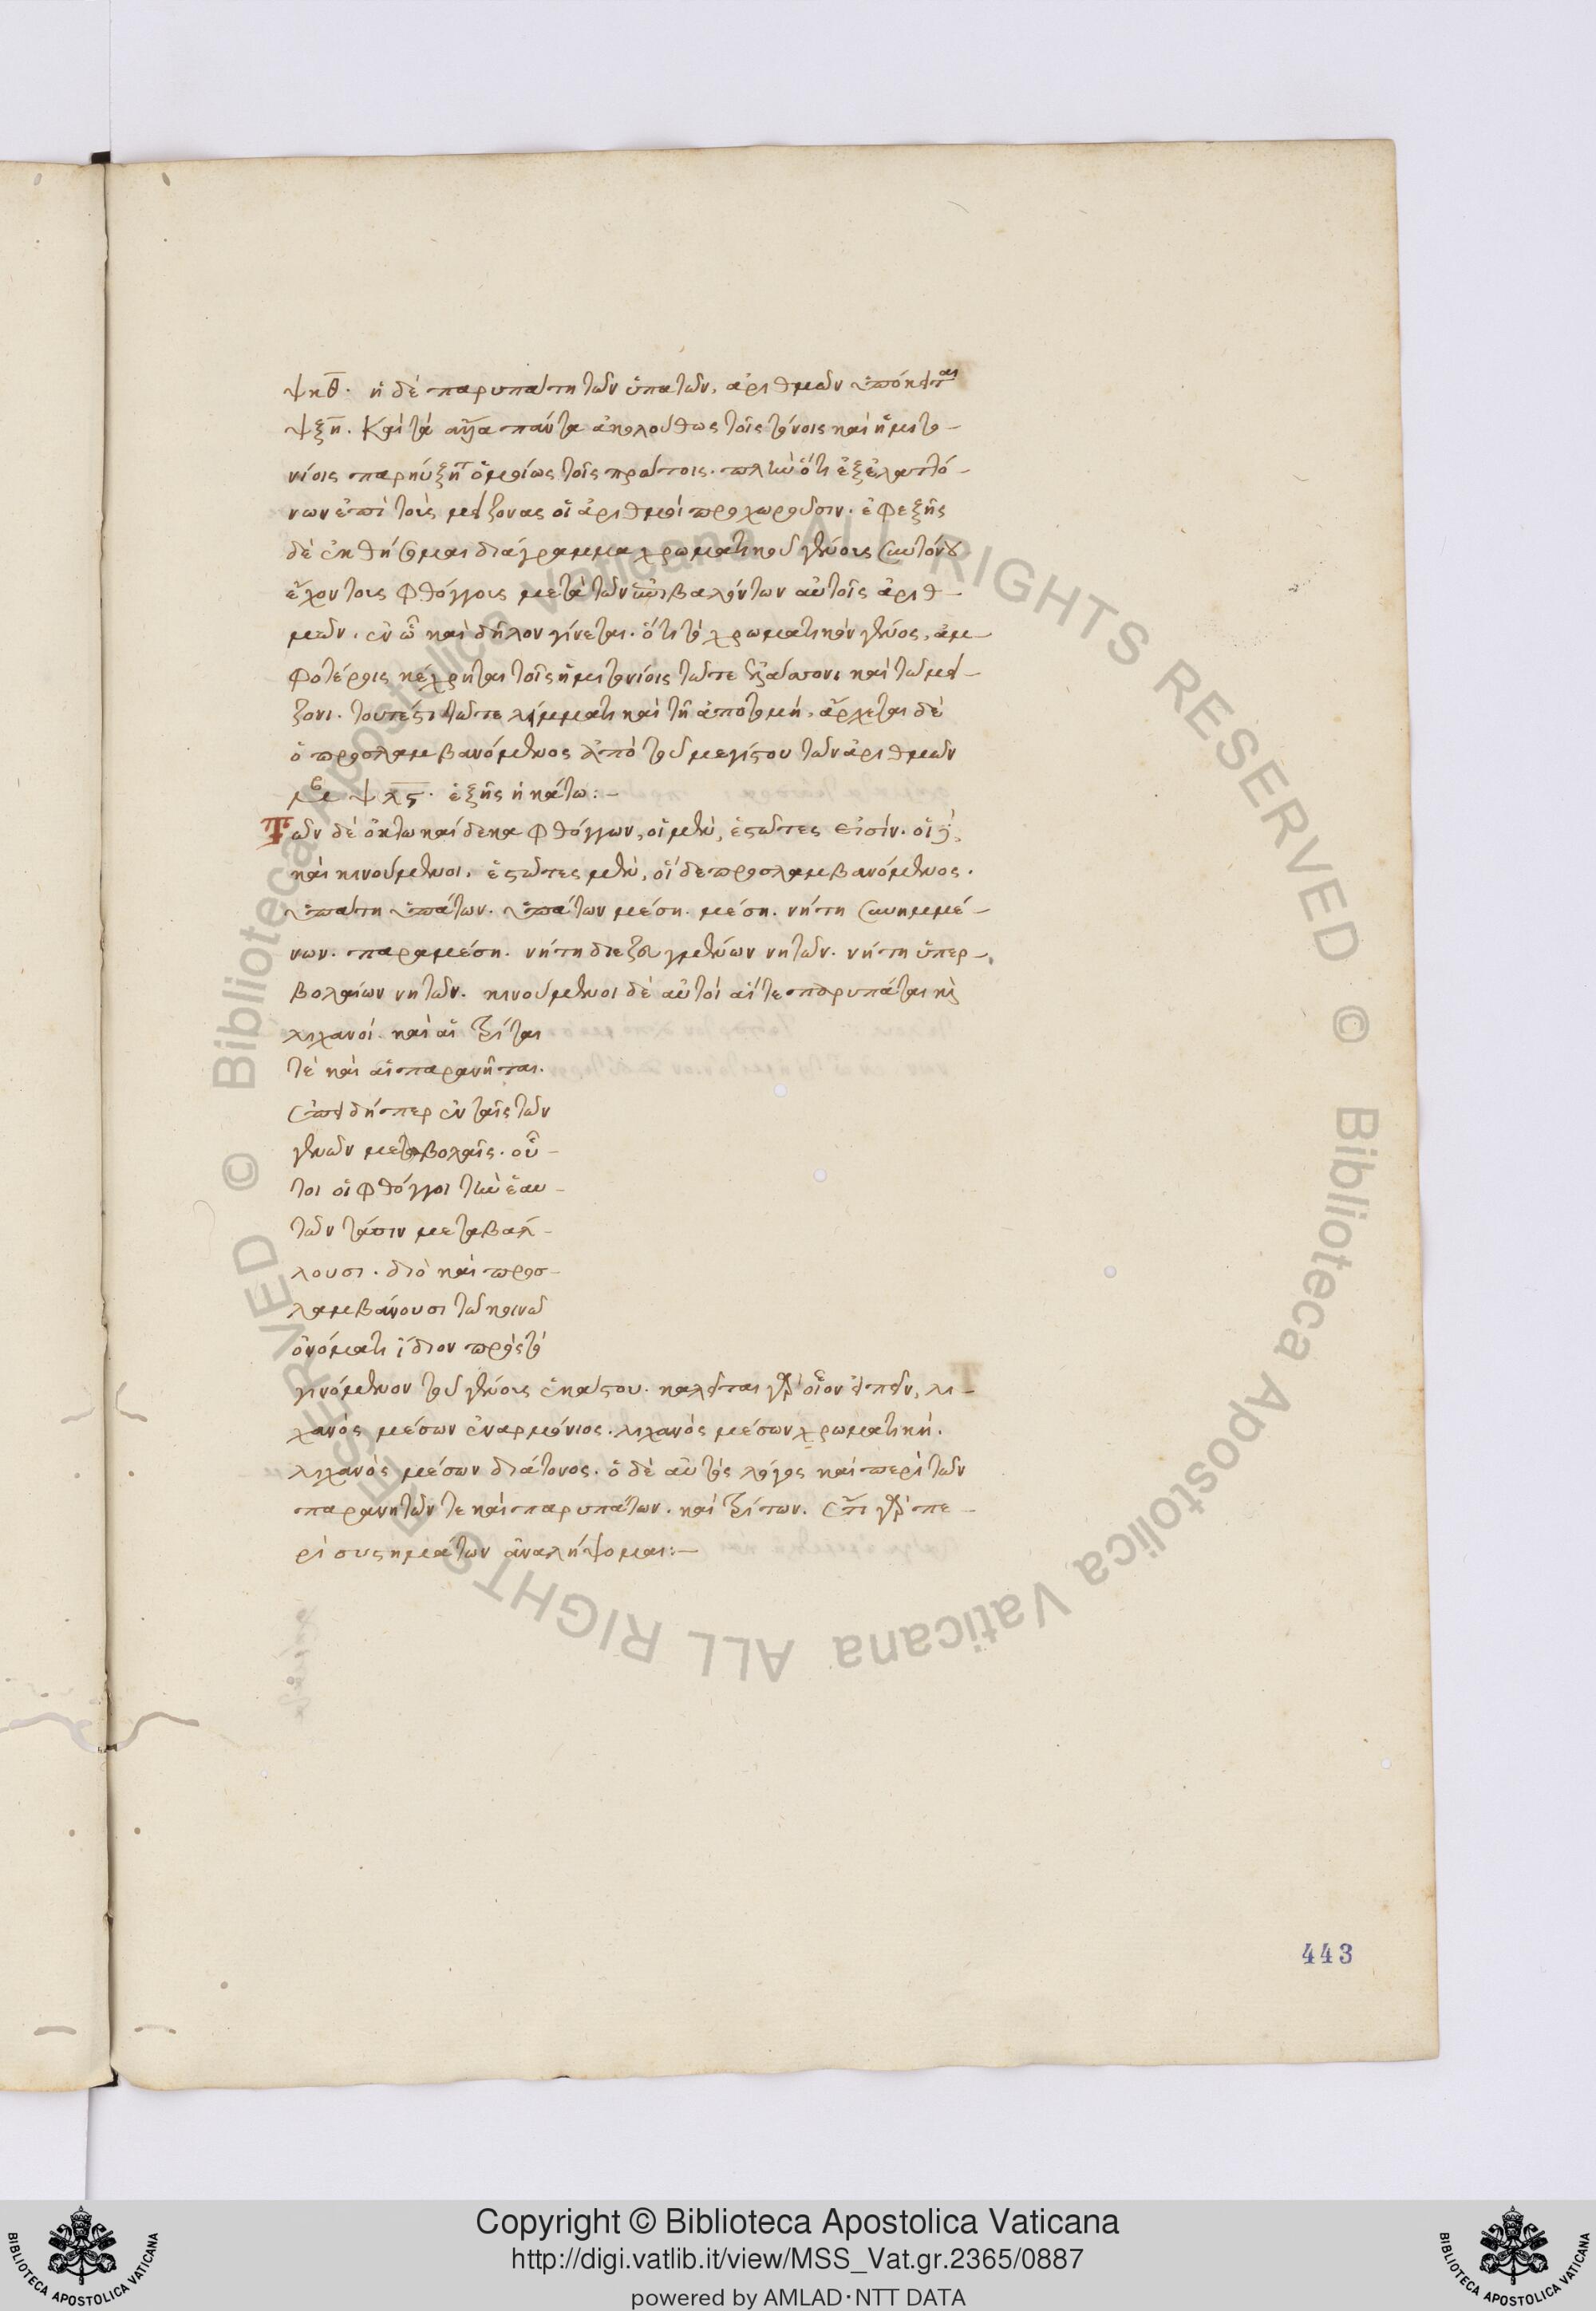 ψκθ. ἡ δὲ παρυπάτη τῶν ὑπατῶν, ἀριθμῶν ὑπόκειται
ψξη. Καὶ τὰ ἄλλα πάντα ἀκολούθως τοῖς τόνοις καὶ ἡμιτο-
νίοις παρηύξηται ὁμοίως τοῖς πρώτοις. πλὴν ὅτι ἐξ ἐλαττό-
νων ἐπὶ τοὺς μείζονας οἱ ἀριθμοὶ προχωροῦσιν. ἐφεξῆς
δὲ ἐκθήσομαι διάγραμμα χρωματικοῦ γένους συντόνου
ἔχον τους φθόγγους μετὰ τῶν ἐπιβαλόντων αὐτοῖς ἀριθ-
μῶν. ἐν ᾧ καὶ δῆλον γίνεται. ὅτι τὸ χρωματικὸν γένος, ἀμ-
φοτέροις κέχρηται τοῖς ἡμιτονίοις τῶ τε ἐλάττονι καὶ τῶ μεί-
ζονι. τουτέστι τῶ τε λείμματι καὶ τῆ ἀποτομή. ἄρχεται δὲ
ὁ προσλαμβανόμενος ἀπὸ τοῦ μεγίστου τῶν ἀριθμῶν
ψλς. ἑξῆς ἡ κάτω:-
Τῶν δὲ ὀκτωκαίδεκα φθόγγων, οἱ μὲν, ἑστῶτες εἰσίν. οἱ δὲ,
καὶ κινούμενοι. ἑστῶτες μὲν, οἵδε προσλαμβανόμενος.
ὑπάτη ὑπάτων. ὑπάτων μέση. μέση. νήτη συνημμέ-
νων. παραμέση. νήτη διεζευγμένων νητῶν. νήτη ὑπερ-
βολαίων νητῶν. κινούμενοι δὲ αὐτοὶ αἵ τε παρυπάται καὶ
λιχανοί. καὶ αἱ τρίται
τὲ καὶ αἱ παρανῆται.
ἐπειδήπερ ἐν ταῖς τῶν
γενῶν μεταβολαῖς. οὗ-
τοι οἱ φθόγγοι τὴν ἑαυ-
τῶν τάσιν μεταβάλ-
λουσι. διὸ καὶ προσ-
λαμβάνουσι τῶ κοινῶ
ὀνόματι ἴδιον πρὸς τὸ
γινόμενον τοῦ γένους ἑκάστου. καλεῖται γὰρ οἷον εἰπεῖν, λι-
χανὸς μέσων ἐναρμόνιος. λιχανὸς μέσων χρωματική.
λιχανὸς μέσων διάτονος. ὁ δὲ αὐτὸς λόγος καὶ περὶ τῶν
παρανητῶν τε καὶ παρυπάτων. καὶ τρίτων. ἔτι γὰρ πε-
ρὶ συστημάτων ἀναλήψομαι:-
443
Copyright © Biblioteca Apostolica Vaticana
http://digi.vatlib.it/view/MSS_Vat.gr.2365/0887
powered by AMLAD·NTT DATA